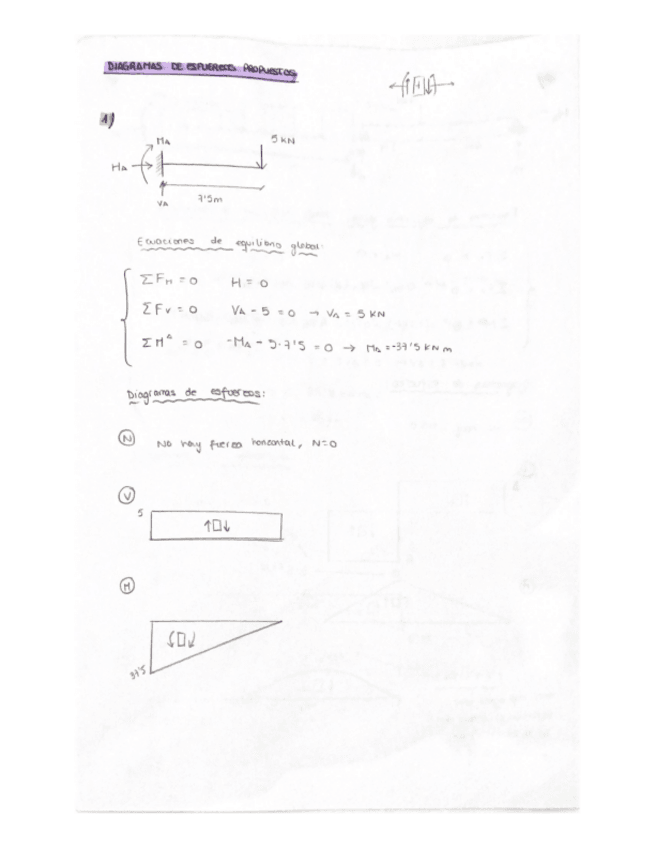 DIAGRAMAS DE ESFUERZOS PROPUESTOS
1)
MA
5 kN
HA
VA
7'5m
Ecuaciones de equilibrio global:
ΣFH = 0 H = 0
ΣFV = 0 VA - 5 = 0 → VA = 5 KN
ΣM^A = 0 -MA - 5·7'5 = 0 → MA = -37'5 KN m
Diagramas de esfuerzos:
N No hay fuerza horizontal, N=0
V
5
↑□↓
M
37'5